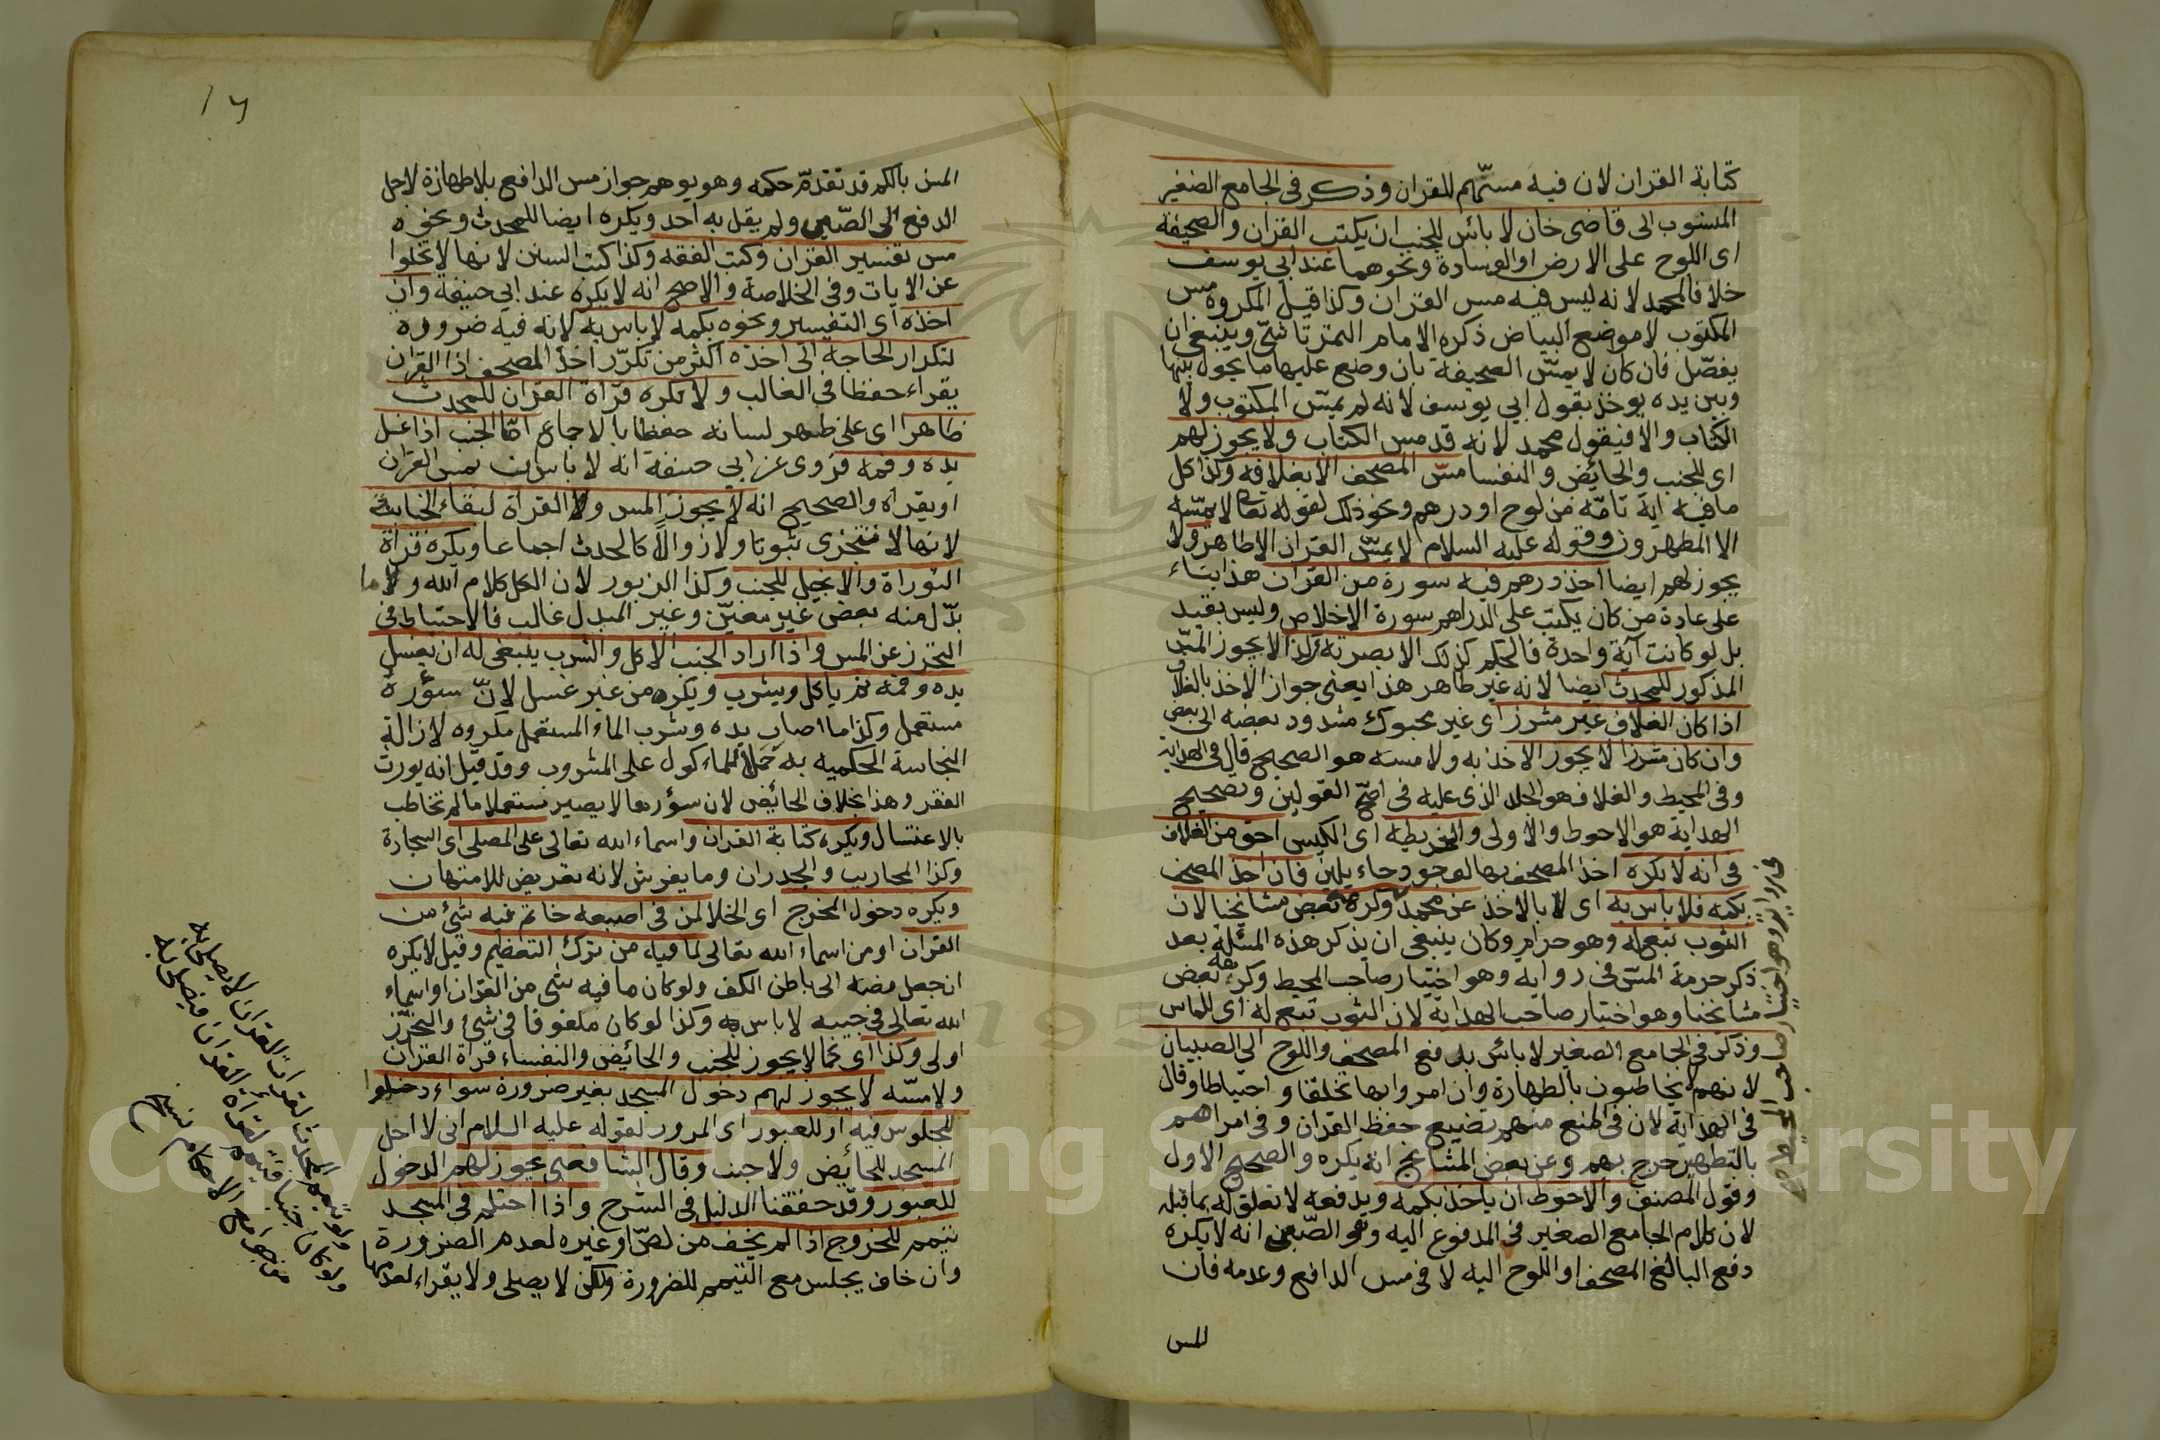 كتابة القران لان فيه مسّهم للقران وذكر فى الجامع الصغير
المنسوب الى قاضى خان لا بائس للجنب ان يكتب القران والصحيفة
اى اللوح على الارض او الوسادة ونحوهما عند ابي يوسف
خلافا لمحمد لانه ليس فيه مس القران وكذا قيل المكروه مس
المكتوب لا موضع البياض ذكره الامام التمرتاشىّ وينبغى ان
يفصّل فان كان لا يمسّ الصحيفة بان وضع عليها ما يحول بينها
وبين يده يوخذ بقول ابي يوسف لانه لم يمسّ المكتوب ولا
الكتاب والا فبقول محمد لانه قد مس الكتاب ولا يجوز لهم
اى للجنب والحائض والنفسا مسّ المصحف الا بغلافه وكذا كل
ما فيه اية تامّة من لوح او درهم ونحو ذلك لقوله تعالى لا يمسّه
الا المطهرون وقوله عليه السلام لا يمسّ القران الا طاهر ولا
يجوز لهم ايضا اخذ درهم فيه سورة من القران هذا بناء
على عادة من كان يكتب على الدراهم سورة الاخلاص وليس بقيد
بل لو كانت آية واحدة فالحكم كذلك الا بصرته وكذا لا يجوز المسّ
المذكور للمحدث ايضا لانه غير طاهر هذا يعنى جواز الاخذ بالغلاف
اذا كان الغلاف غير مشرز اى غير محبوك مشدود بعضه الى بعض
وان كان مشرزا لا يجوز الاخذ به ولا مسه هو الصحيح قال فى الهداية
وفى المحيط والغلاف هو الجلد الذى عليه فى اصحّ القولين وتصحيح
الهداية هو الاحوط والاولى والخريطة اى الكيس احق من الغلاف
فى انه لا يكره اخذ المصحف بها لوجود حاءيلين فان اخذ المصحف
بكمه فلا باس به اى لا بالاخذ عن محمد وكره بعض مشايخنا لان
الثوب تبع له وهو حرام وكان ينبغى ان يذكر هذه المسئلة بعد
ذكر حرمة المسّ فى رواية وهو اختيار صاحب المحيط وكرهه بعض
مشايخنا وهو اختيار صاحب الهداية لان الثوب تبع له اى للماس
وذكر فى الجامع الصغير لا بائس بدفع المصحف واللوح الى الصبيان
لانهم لا يخاطبون بالطهارة وان امروا بها تخلقا واحتياطا وقال
فى الهداية لان فى المنع منهم تضييع حفظ القران وفى امراهم
بالتطهير حرج بهم وعن بعض المشايخ انه يكره والصحيح الاول
وقول المصنف والاحوط ان ياخذ بكمه ويدفعه لا تعلق له بما قبله
لان كلام الجامع الصغير فى المدفوع اليه وهو الصّبى انه لا يكره
دفع البالغ المصحف او اللوح اليه لا فى مس الدافع وعدمه فان
للمس
فى رواية وهو اختيار صاحب المحيط
١٦
المس بالكم قد تقدّم حكمه وهو يوهم جواز مس الدافع بلا طهارة لاجل
الدفع الى الصّبى ولم يقل به احد ويكره ايضا للمحدث ونحوه
مس تفسير القران وكتب الفقه وكذا كتب السنن لانها لا تخلوا
عن الايات وفى الخلاصة والاصح انه لا يكره عند ابي حنيفة وان
اخذه اى التفسير ونحوه بكمه لا باس به لانه فيه ضرورة
لتكرار الحاجة الى اخذه اكثر من تكرّر اخذ المصحف اذ القران
يقراء حفظا فى الغالب ولا يكره قراة القران للمحدث
ظاهرا اى على ظهر لسانه حفظا بالاجماع امّا الجنب اذا غسل
يده وفمه فروى عن ابي حنيفة انه لا باس ان يمس القران
او يقراه والصحيح انه لا يجوز المس ولا القراة لبقاء الجنابة
لانها لا تتجزى ثبوتا ولا زوالاً كالحدث اجماعا ويكره قراة
التوراة والانجيل للجنب وكذا الزبور لان الكل كلام الله وما
بدّل منه بعض غير معيّن وغير المبدل غالب فالاحتياط فى
التحرز عن المس واذا اراد الجنب الاكل والشرب ينبغى له ان يغسل
يده وفمه ثم ياكل ويشرب ويكره من غير غسل لانّ سؤره
مستعمل وكذا ما اصاب يده وشرب الماء المستعمل مكروه لازالة
النجاسة الحكمية به حملا للماءكول على المشروب وقد قيل انه يورث
الفقر وهذا بخلاف الحائض لان سؤرها لا يصير مستعملا ما لم تخاطب
بالاغتسال ويكره كتابة القران واسماء الله تعالى على المصلى اى السجادة
وكذا المحاريب والجدران وما يفرش لانه تعريض للامتهان
ويكره دخول المخرج اى الخلا لمن فى اصبعه خاتم فيه شئ من
القران او من اسماء الله تعالى لما فيه من ترك التعظيم وقيل لا يكره
ان جعل فصه الى باطن الكف ولو كان ما فيه شى من القران او اسماء
الله تعالى فى جيبه لا باس به وكذا لو كان ملفوفا فى شئ والتحرّز
اولى وكذا اى كما لا يجوز للجنب والحائض والنفساء قراة القران
ولا مسّه لا يجوز لهم دخول المسجد بغير ضرورة سواء دخلوا
للجلوس فيه او للعبور اى المرور لقوله عليه السلام انى لا احل
المسجد للحائض ولا جنب وقال الشافعى يجوز لهم الدخول
للعبور وقد حققنا الدليل فى الشرح واذا احتلم فى المسجد
تيمم للخروج اذا لم يخف من لصّ او غيره لعدم الضرورة
وان خاف يجلس مع التيمم للضرورة ولكن لا يصلى ولا يقراء لعدمها
ولو تيمم المحدث لقراءة القران لا يصلى به
ولو كان جنبا فتيمم لقراة القران فيصلى به
من جامع الاحكام